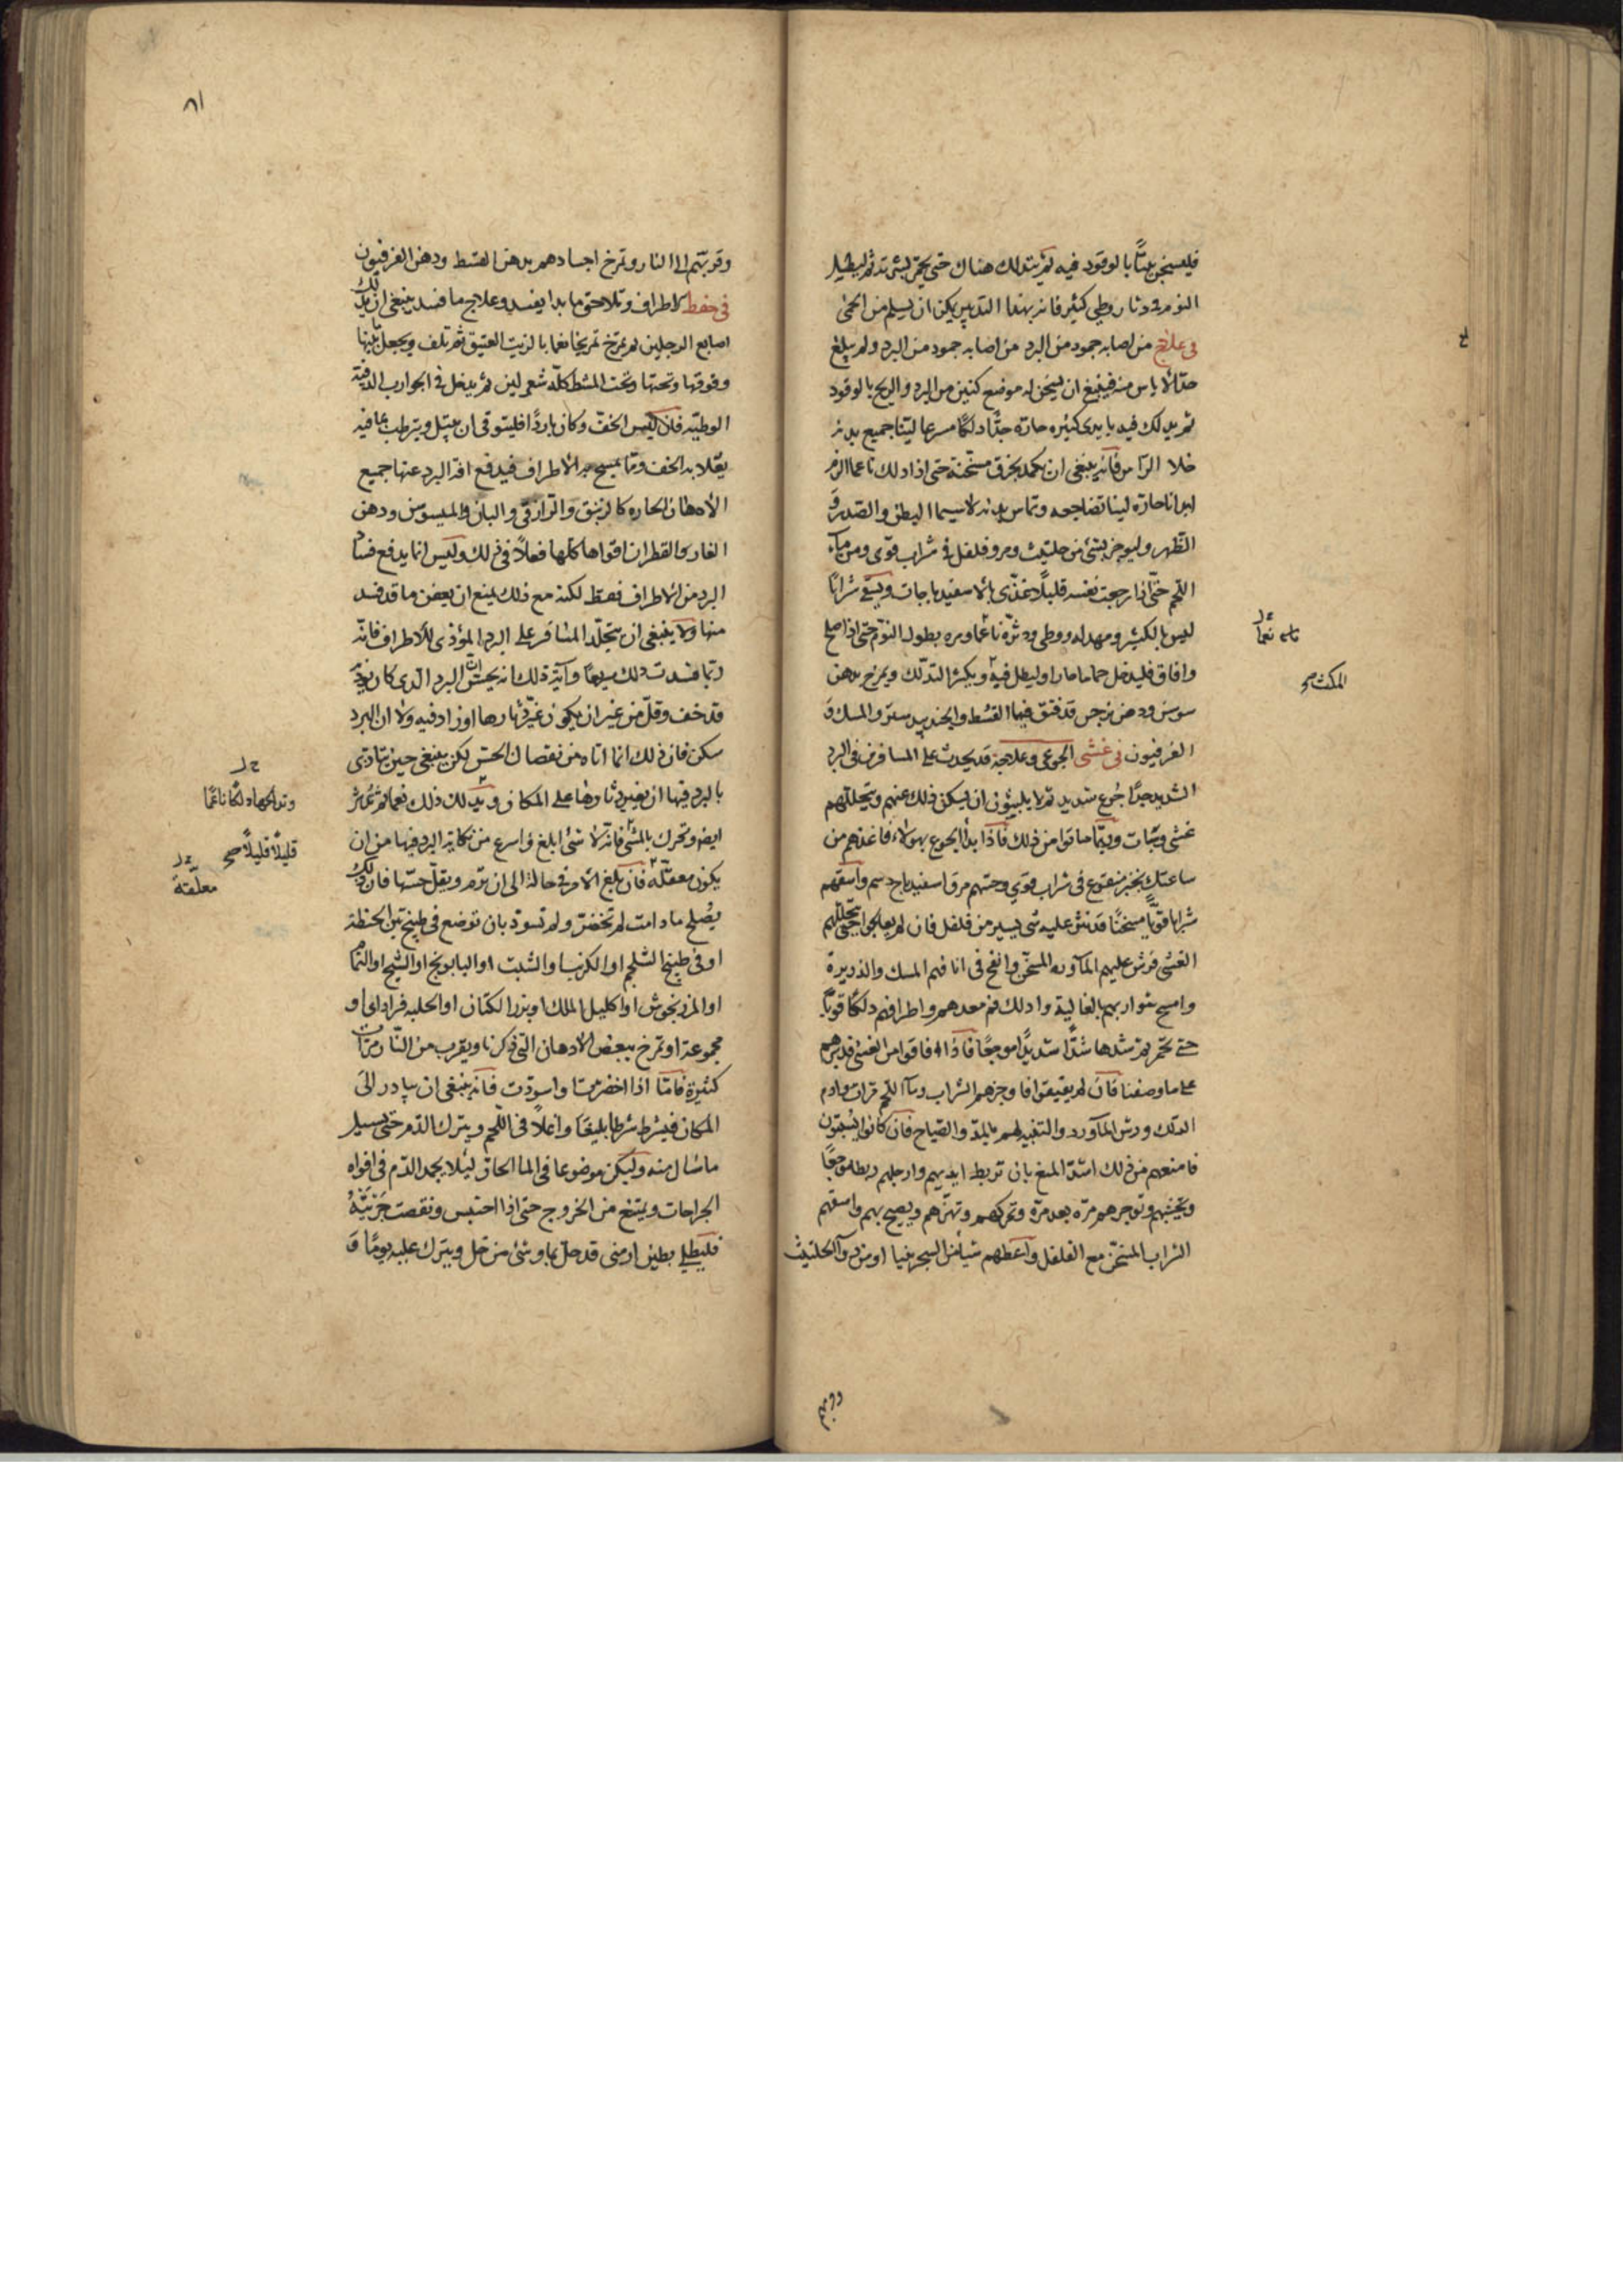 فليسخن بيتًا بالوقود فيه ثم يتدلك هناك حتى يحمر بشرته ثم ليطيل
النوم في دثار وطي كثير فانه بهذا التدبير يمكن ان يسلم من الحمى
في علاج من اصابه جمود من البرد من اصابه جمود من البرد ولم يبلغ
حد الاياس منه فينبغي ان يسخن له موضع كنين من البرد والريح بالوقود
ثم يدلك فيه بايدى كثيره حاره جدًّا دلكًا مسرعا لينا جميع بدنه
خلا الراس فانه ينبغي ان يكمد بخرق مسخنة حتى اذا دلك ناعما الزم
ابدانا حاره لينا تضاجعه وتماس بدنه لا سيما البطن والصدر و
الظهر وليوجر بشئ من حلتيث ومر وفلفل في شراب قوى ومن ماء
اللحم حتى اذا رجعت نفسه قليلًا تغذى بالاسفيدباجات ويسقى شرابًا
ليس بالكثير ومهد له ووطى ودثره ناعما ومره بطول النوم حتى اذا صلح
وافاق فليدخل حماما حارا وليطل فيه ويكثر التدلك ويمرخ بدهن
سوسن ودهن نرجس قد فتق فيها القسط والجندبيدستر والمسك و
الفرفيون في غشى الجوعى وعلاجه قد يحدث على المسافر في البرد
الشديد جدًا جوع شديد ثم لا يلبثون ان يسكن ذلك عنهم ويتحللهم
غشى وسبات وربما ماتوا من ذلك فاذا بدأ الجوع بهولاء فاغذهم من
ساعتك بخبز منقوع في شراب قوي وحسهم مرق اسفيدباج دسم واسقهم
شرابا قويًّا مسخنًا قد نثر عليه شى يسير من فلفل فان لم يعالجوا حتى يتحللهم
الغشى فرش عليهم الماورد المسخن وانفخ في انافهم المسك والذريرة
وامسح شواربهم بالغالية وادلك فم معدهم واطرافهم دلكًا قويًّا
حتى تحمر ثم شدها شدًّا شديدًا موجعًا فاذا افاقوا من الغشى فدبرهم
على ما وصفنا فان لم يفيقوا فاوجرهم الشراب وماء اللحم مرات وادم
الدلك ورش الماورد والتنبيه لهم بالمد والصياح فان كانوا يسبتون
فامنعهم من ذلك اشد المنع بان تربط ايديهم وارجلهم ربطا موجعًا
وتجنبهم وتوجرهم مرة بعد مرة وتحركهم وتهزهم ويصيح بهم واسقهم
الشراب المسخن مع الفلفل واعطهم شيأ من السجزينيا او من دواء الحلتيث
المكث صح
وقربتهم
٨١
وقربتهم الى النار وتمرخ اجسادهم بدهن القسط ودهن الفرفيون
في حفظ الاطراف وتلاحق ما بدا يفسد وعلاج ما فسد ينبغي ان يدلك
اصابع الرجلين ثم تمرخ تمريخا نعما بالزيت العتيق ثم تلف ويجعل بينها
وفوقها وتحتها وتحت المشط كله شعر لين ثم يدخل في الجوارب الدفية
الوطية فلان يكيس الخف وكان باردًا فليتوقى ان يبتل ويترطب ما فيه
الادهان الحاره كالزنبق والرازقي والبان والميسوسن ودهن
الغار والقطران اقواها كلها فعلًا في ذلك وليس انما يدفع فساد
البرد من الاطراف فقط لكنه مع ذلك يمنع ان يعفن ما قد فسد
منها ولا ينبغي ان يتجلد المسافر على البرد المؤذى للاطراف فانه
ربما فسدت ذلك سريعًا وآية ذلك انه يحس ان البرد الذى كان يوذيه
قد خف وقل من غير ان يكون غير دثارها او زاد فيه ولا ان البرد
سكن فان ذلك انما اتاه من نقصان الحس لكن ينبغي حين يتادى
بالبرد فيها ان يغير دثارها على المكان ويدلك ذلك نعما ثم تدثر
ايضا وتحرك بالمشى فانه لا شئ ابلغ واسرع من نكاية البرد فيها من ان
يكون معقلة فان بلغ الامر في حالة الى ان ترم ويقل حسها فان ذلك
يصلح ما دامت لم تخضر ولم تسود بان توضع في طبيخ تبن الحنطة
او في طبيخ الشلجم او الكرنب والشبت او البابونج او الشيح او النمام
او المرزنجوش او اكليل الملك او بزر الكتان او الحلبه فرادى او
مجموعة او تمرخ ببعض الادهان التى ذكرنا ويقرب من النار مرات
كثيرة فامّا اذا اخضرت واسودت فانه ينبغي ان يبادر الى
المكان فيشرط شرطا بليغا واغلًا في اللحم ويترك الدم حتى يسيل
ما سال منه وليكن موضوعا في الما الحار ليلا يجمد الدم في افواه
الجراحات ويمتنع من الخروج حتى اذا احتبس ونقصت جريته
فليطلى بطين ارمنى قد حل بماء وشئ من خل ويترك عليه يومًا و
وتدلكها دلكًا ناعمًا
قليلًا قليلًا صح
معلقة